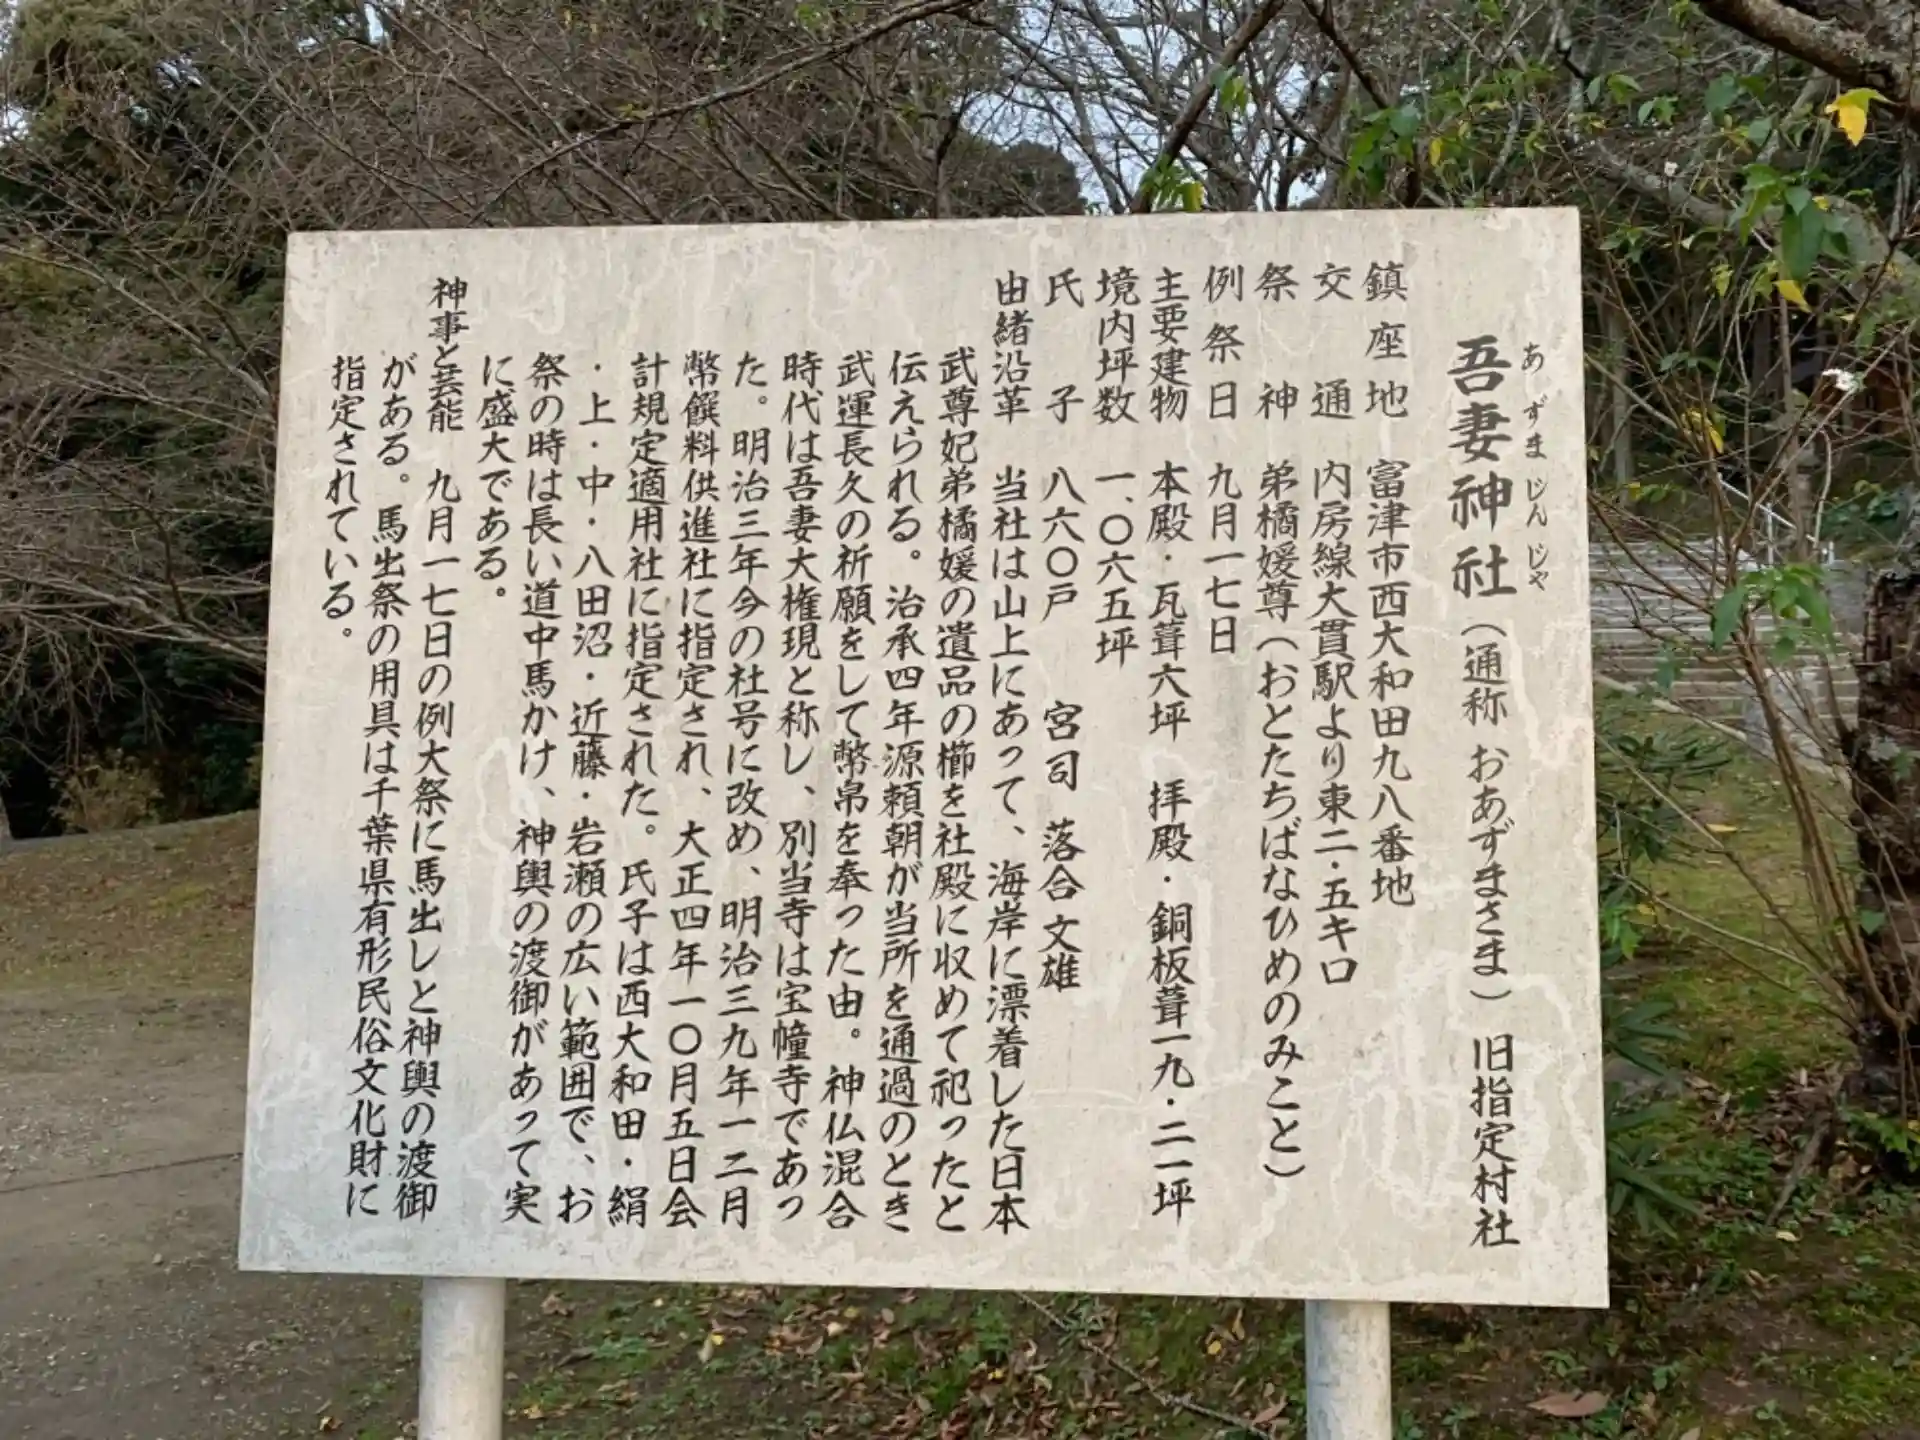 吾妻神社(通称 おあずまさま) 旧指定村社
あずまじんじゃ
鎮座地 富津市西大和田九八番地
交通 内房線大貫駅より東二・五キロ
祭神 弟橘媛尊(おとたちばなひめのみこと)
例祭日 九月一七日
主要建物 本殿・瓦葺六坪 拝殿・銅板葺一九・二一坪
境内坪数 一、〇六五坪
氏子 八六〇戸 宮司 落合文雄
由緒沿革 当社は山上にあって、海岸に漂着した日本
武尊妃弟橘媛の遺品の櫛を社殿に収めて祀ったと
伝えられる。治承四年源頼朝が当所を通過のとき
武運長久の祈願をして幣帛を奉った由。神仏混合
時代は吾妻大権現と称し、別当寺は宝幢寺であっ
た。明治三年今の社号に改め、明治三九年一二月
幣饌料供進社に指定され、大正四年一〇月五日会
計規定適用社に指定された。氏子は西大和田・絹
・上・中・八田沼・近藤・岩瀬の広い範囲で、お
祭の時は長い道中馬かけ、神輿の渡御があって実
に盛大である。
神事と芸能 九月一七日の例大祭に馬出しと神輿の渡御
がある。馬出祭の用具は千葉県有形民俗文化財に
指定されている。